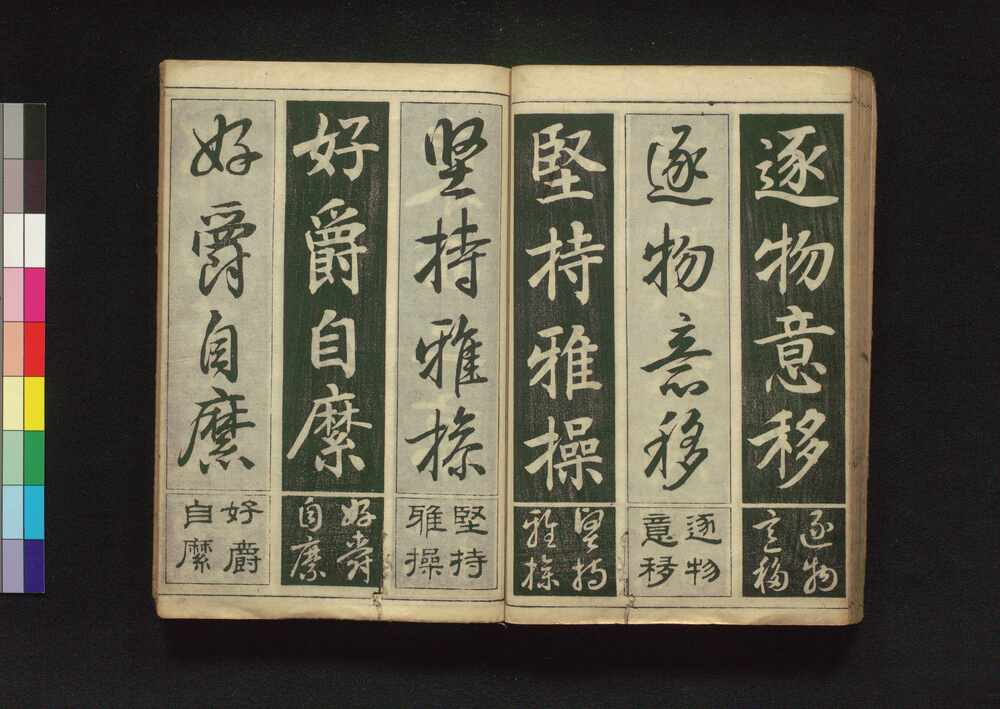 逐物意移
逐物
意移
逐物意移
逐物
意移
堅持雅操
堅持
雅操
坚持雅操
堅持
雅操
好爵自縻
好爵
自縻
好爵自縻
好爵
自縻